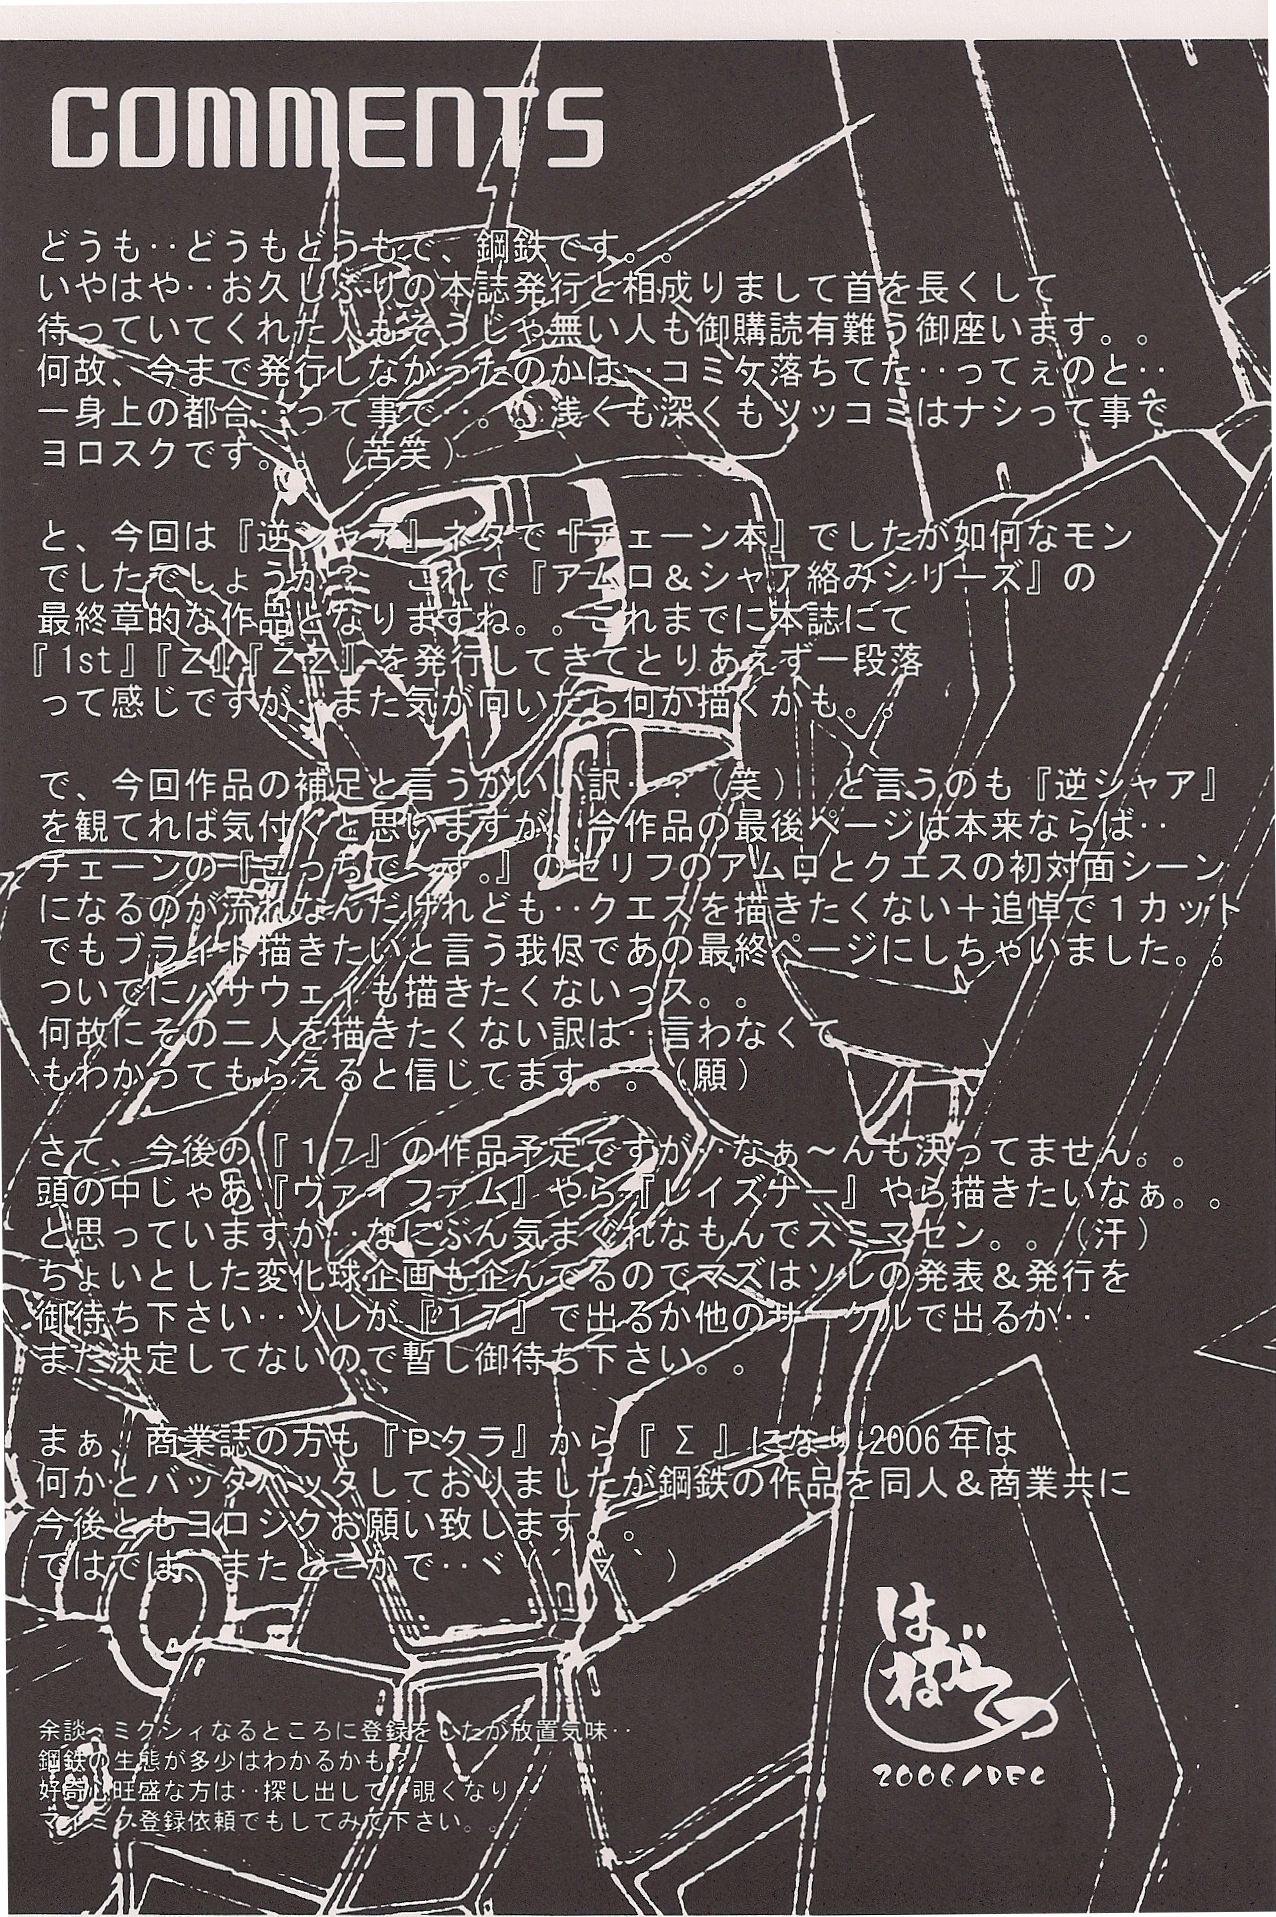 COMMENTS
どうも‥どうもどうもで、鋼鉄です。。
いやはや‥お久しぶりの本誌発行と相成りまして首を長くして
待っていてくれた人もそうじゃ無い人も御購読有難う御座います。。
何故、今まで発行しなかったのかは‥コミケ落ちてた‥ってぇのと‥
一身上の都合‥って事で‥。。浅くも深くもツッコミはナシって事で
ヨロスクです。。（苦笑）
と、今回は『逆シャア』ネタで『チェーン本』でしたが如何なモン
でしたでしょうか？　これで『アムロ＆シャア絡みシリーズ』の
最終章的な作品となりますね。。これまでに本誌にて
『1st』『Z』『ZZ』を発行してきてとりあえず一段落
って感じですが‥また気が向いたら何か描くかも。。
で、今回作品の補足と言うかいい訳‥？（笑）　と言うのも『逆シャア』
を観てれば気付くと思いますが、今作品の最後ページは本来ならば‥
チェーンの『こっちで〜す。』のセリフのアムロとクエスの初対面シーン
になるのが流れなんだけれども‥クエスを描きたくない＋追悼で１カット
でもブライト描きたいと言う我侭であの最終ページにしちゃいました。。
ついでにハサウェイも描きたくないっス。。
何故にその二人を描きたくない訳は‥言わなくて
もわかってもらえると信じてます。。（願）
さて、今後の『１７』の作品予定ですが‥なぁ〜んも決ってません。。
頭の中じゃあ『ヴァイファム』やら『レイズナー』やら描きたいなぁ。。
と思っていますが‥なにぶん気まぐれなもんでスミマセン。。（汗）
ちょいとした変化球企画も企んでるのでマズはソレの発表＆発行を
御待ち下さい‥ソレが『１７』で出るか他のサークルで出るか‥
まだ決定してないので暫し御待ち下さい。。
まぁ、商業誌の方も『Pクラ』から『Σ』になり2006年は
何かとバッタバッタしておりましたが鋼鉄の作品を同人＆商業共に
今後ともヨロシクお願い致します。。
ではでは、またどこかで‥ヾ（´▽｀）
はがねてつ
2006/DEC
余談：ミクシィなるところに登録をしたが放置気味‥
鋼鉄の生態が多少はわかるかも？
好奇心旺盛な方は‥探し出して‥覗くなり‥
マイミク登録依頼でもしてみて下さい。。